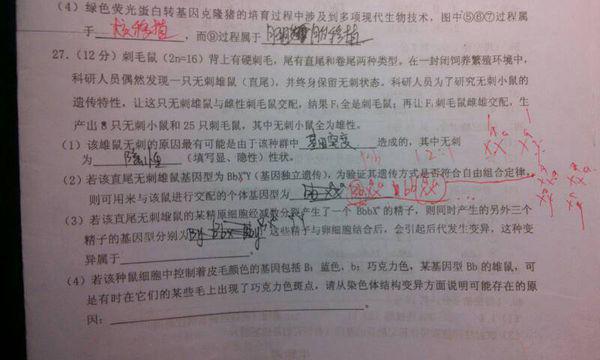 (4) 绿色荧光蛋白转基因克隆猪的培育过程中涉及到多项现代生物技术，图中⑤⑥⑦过程属
于 核移植 ，而⑨过程属于 胚胎移植
27.(12分) 刺毛鼠（2n=16）背上有硬刺毛，尾有直尾和卷尾两种类型。在一封闭饲养繁殖环境中，
科研人员偶然发现一只无刺雄鼠（直尾），并终身保留无刺状态。科研人员为了研究无刺小鼠的
遗传特性，让这只无刺雄鼠与雌性刺毛鼠交配，结果F₁全是刺毛鼠；再让F₁刺毛鼠雌雄交配，生
产出8只无刺小鼠和25只刺毛鼠，其中无刺小鼠全为雄性。
(1) 该雄鼠无刺的原因最有可能是由于该种群中 基因突变 造成的，其中无刺
为 隐性 （填写显、隐性）性状。
(2) 若该直尾无刺雄鼠基因型为BbXᵃY（基因独立遗传），为验证其遗传方式是否符合自由组合定律，
则可用来与该鼠进行交配的个体基因型为
(3) 若该直尾无刺雄鼠的某精原细胞经减数分裂产生了一个BbbXᵃ的精子，则同时产生的另外三个
精子的基因型分别为 这些精子与卵细胞结合后，会引起后代发生变异，这种变
异属于
(4) 若该种鼠细胞中控制着皮毛颜色的基因包括B：蓝色，b：巧克力色，某基因型Bb的雄鼠，可
是有时在它们的某些毛上出现了巧克力色斑点，请从染色体结构变异方面说明可能存在的原
因：